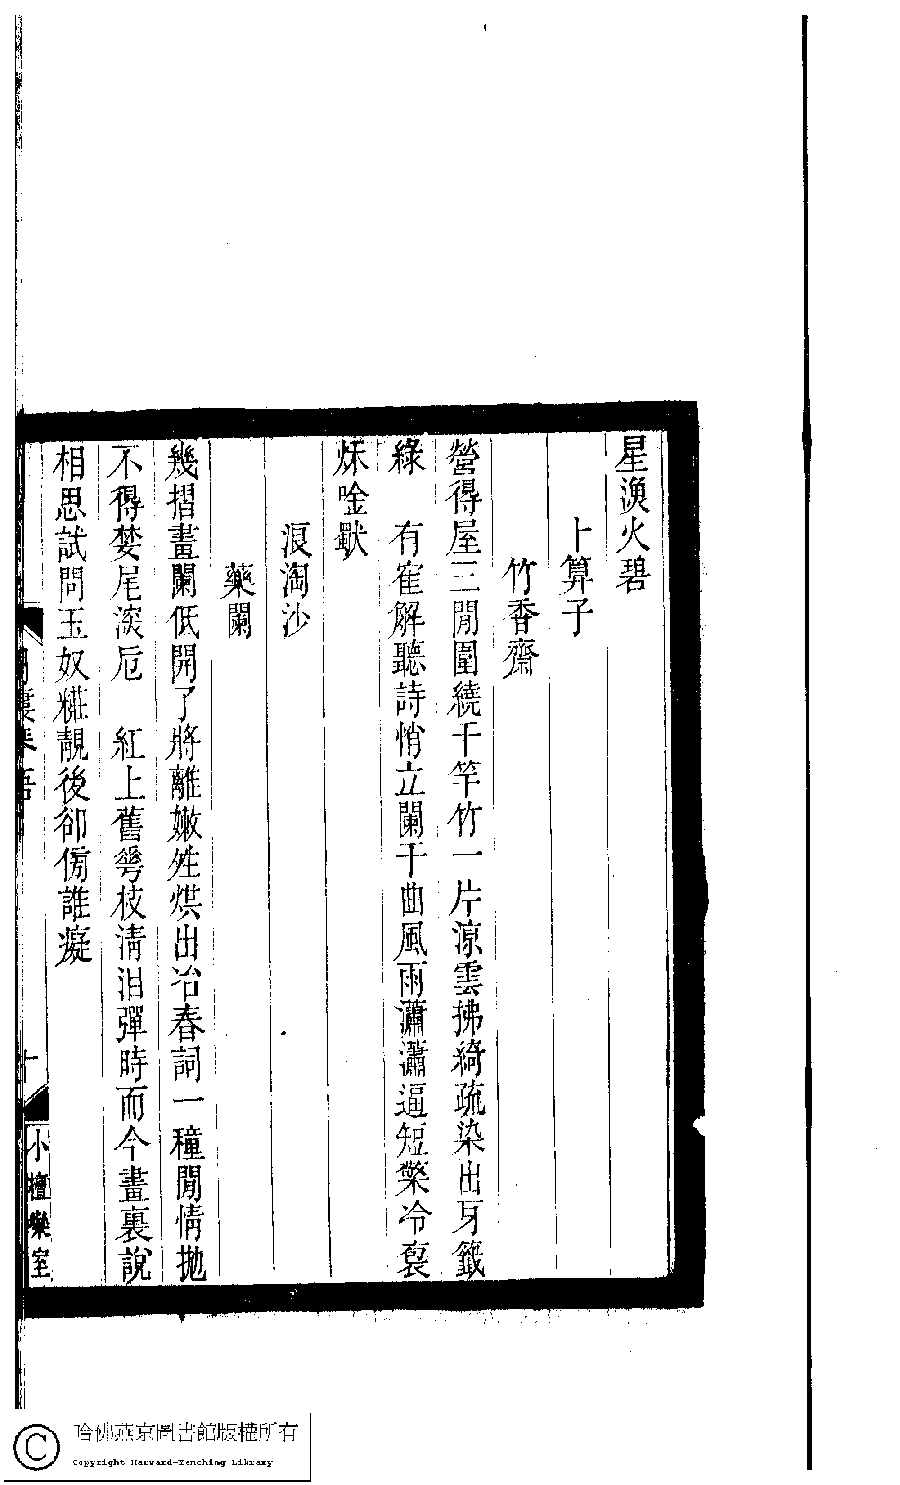 星漁火碧
卜算子
竹香齋
營得屋三閒圍繞千竿竹一片涼雲拂綺疏染出牙籤
綠　有隺解聽詩悄立闌干曲風雨瀟瀟逼短檠冷裛
烌唫歗
浪淘沙
藥闌
幾摺畫闌低開了將離嫩姓烘出冶春詞一種閒情拋
不得婪尾深卮　紅上舊花枝清泪彈時而今畫裏說
相思試問玉奴糚靚後卻傍誰癡
琴語
十
小檀欒室
哈佛燕京圖書館版權所有
Copyright Harvard-Yenching Library